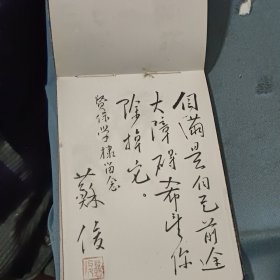 自满是自己前途
大障碍希望你
除掉它。
贤保学棣留念
苏俊